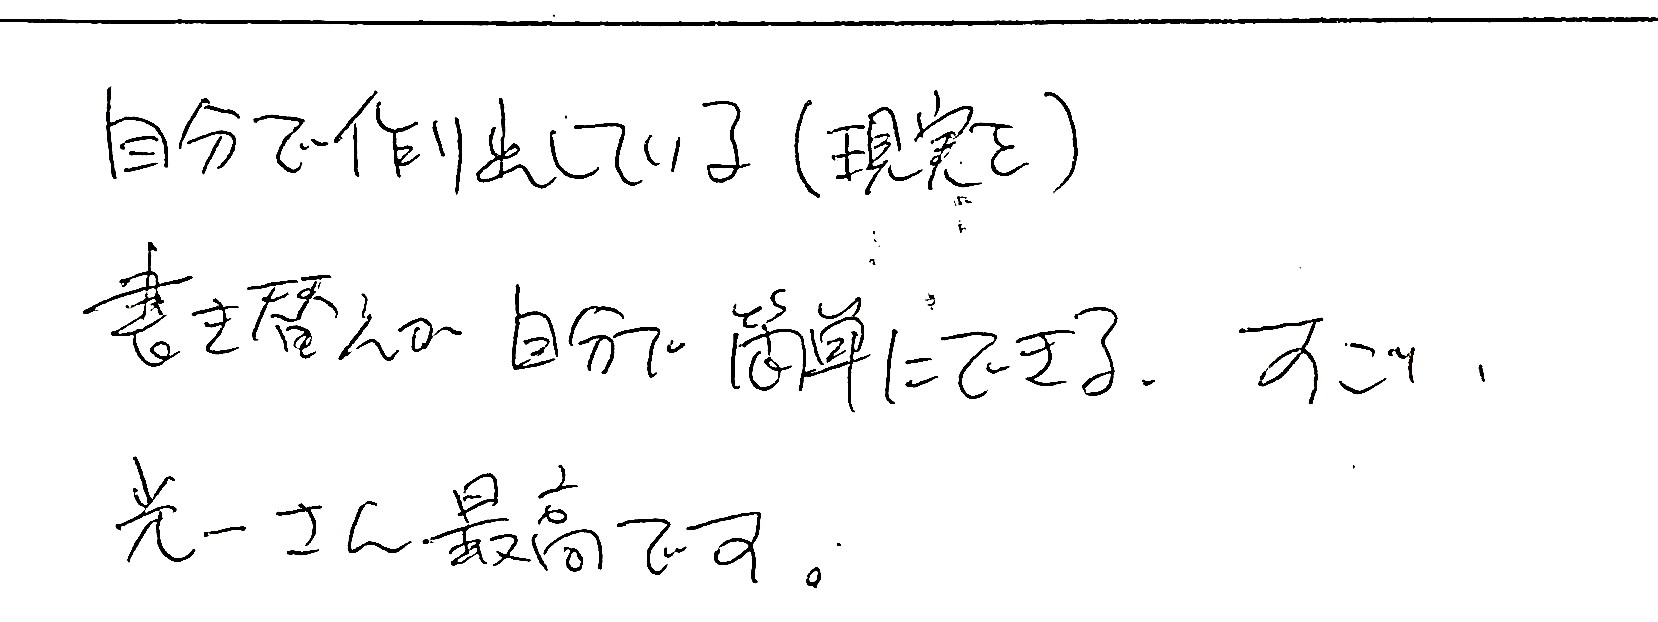 自分で作り出している(現実を)
書き替えが 自分で 簡単にできる. すごい.
光一さん最高です。